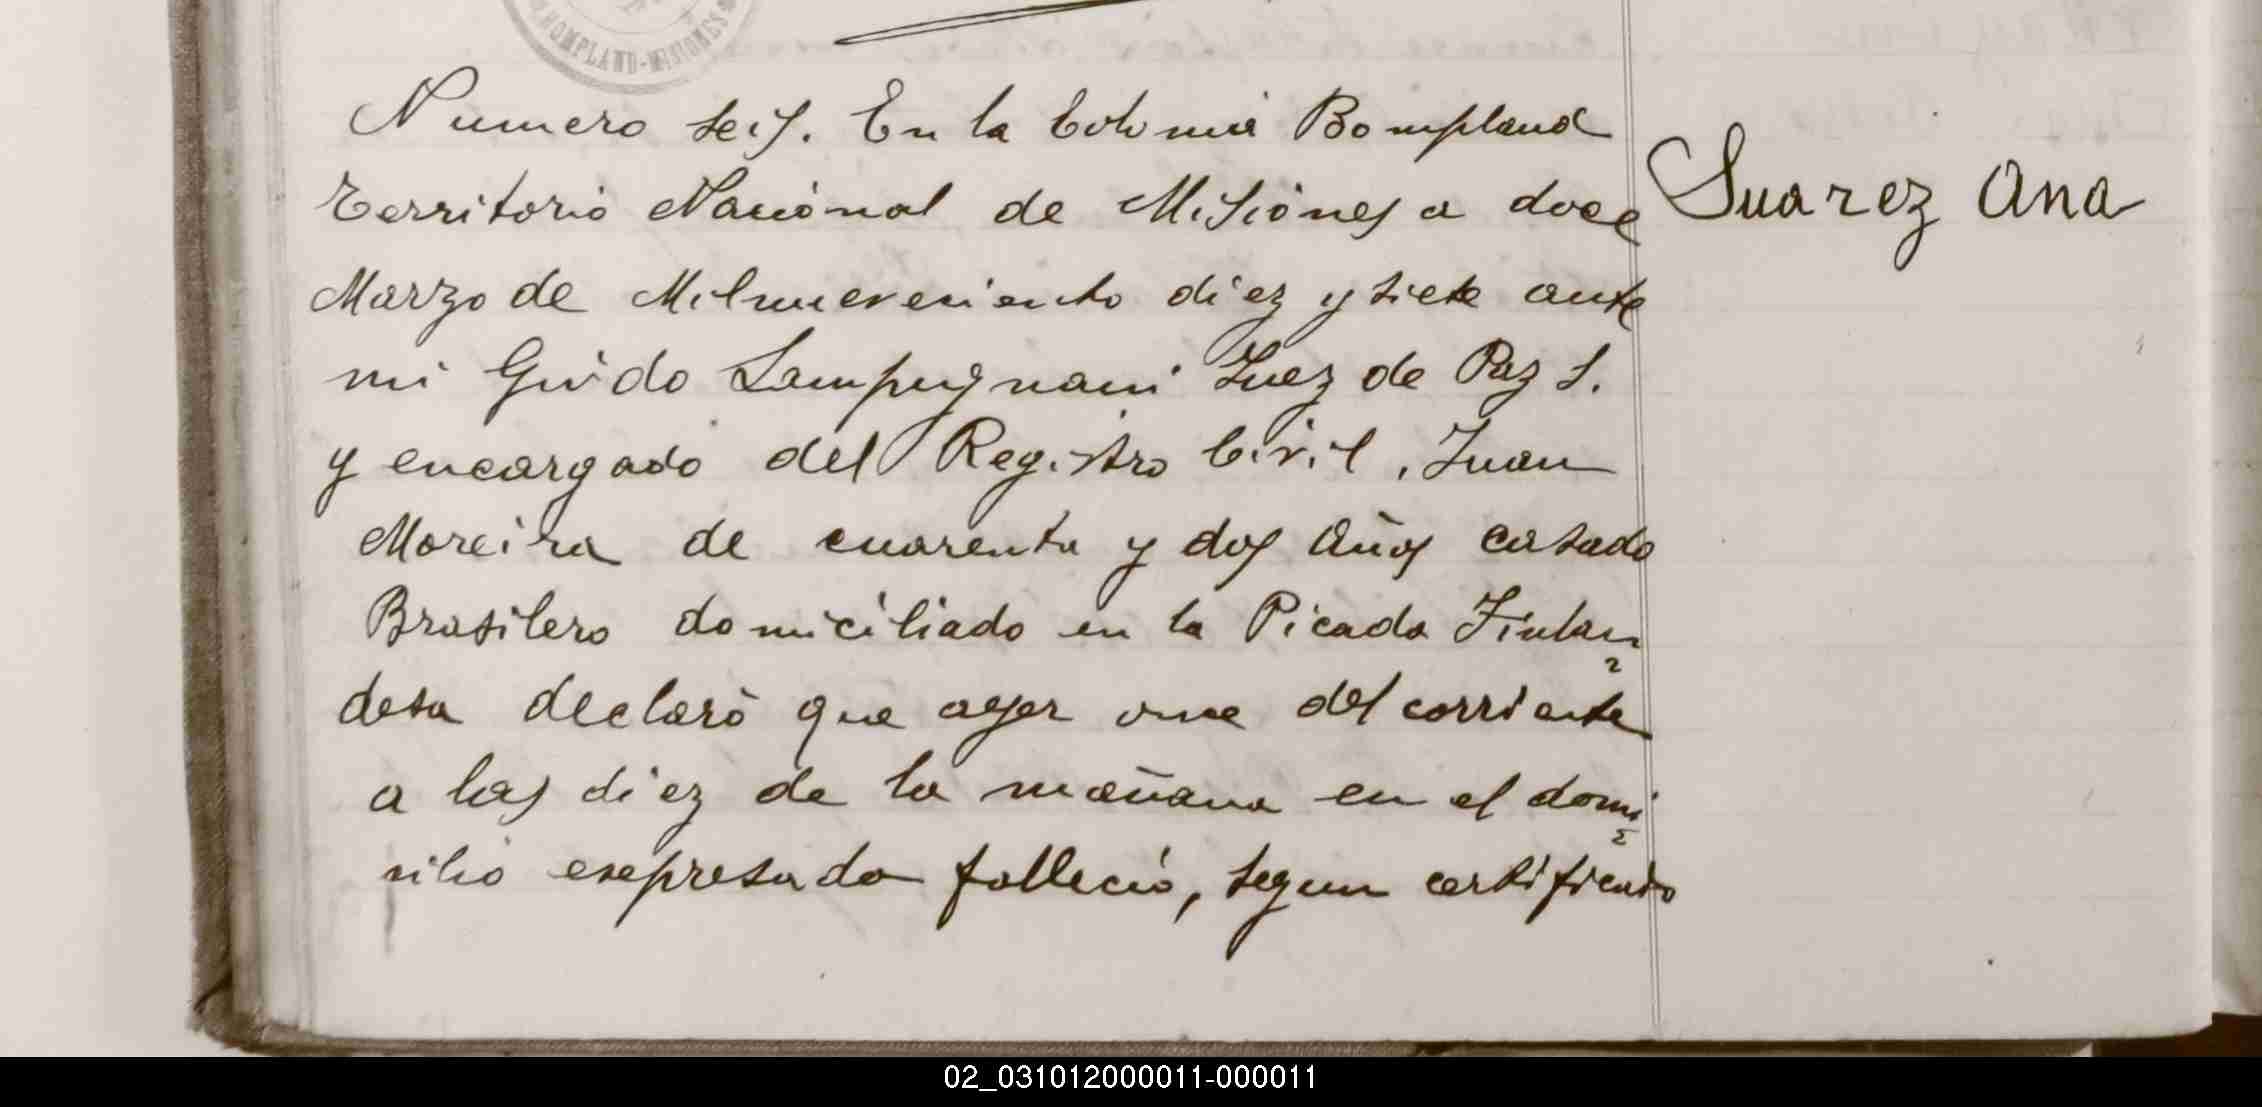 BOMPLAND-MISIONES
Numero seis. En la Colonia Bompland
Territorio Nacional de Misiones a doce
Marzo de Milnueveciento diez y siete ante
mi Guido Lampugnani Juez de Paz S.
y encargado del Registro Civil, Juan
Moreira de cuarenta y dos años casado
Brasilero domiciliado en la Picada Finlan
desa declaró que ayer once del corriente
a las diez de la mañana en el domi
cilio esepresado falleció, segun certificado
Suarez Ana
02_031012000011-000011